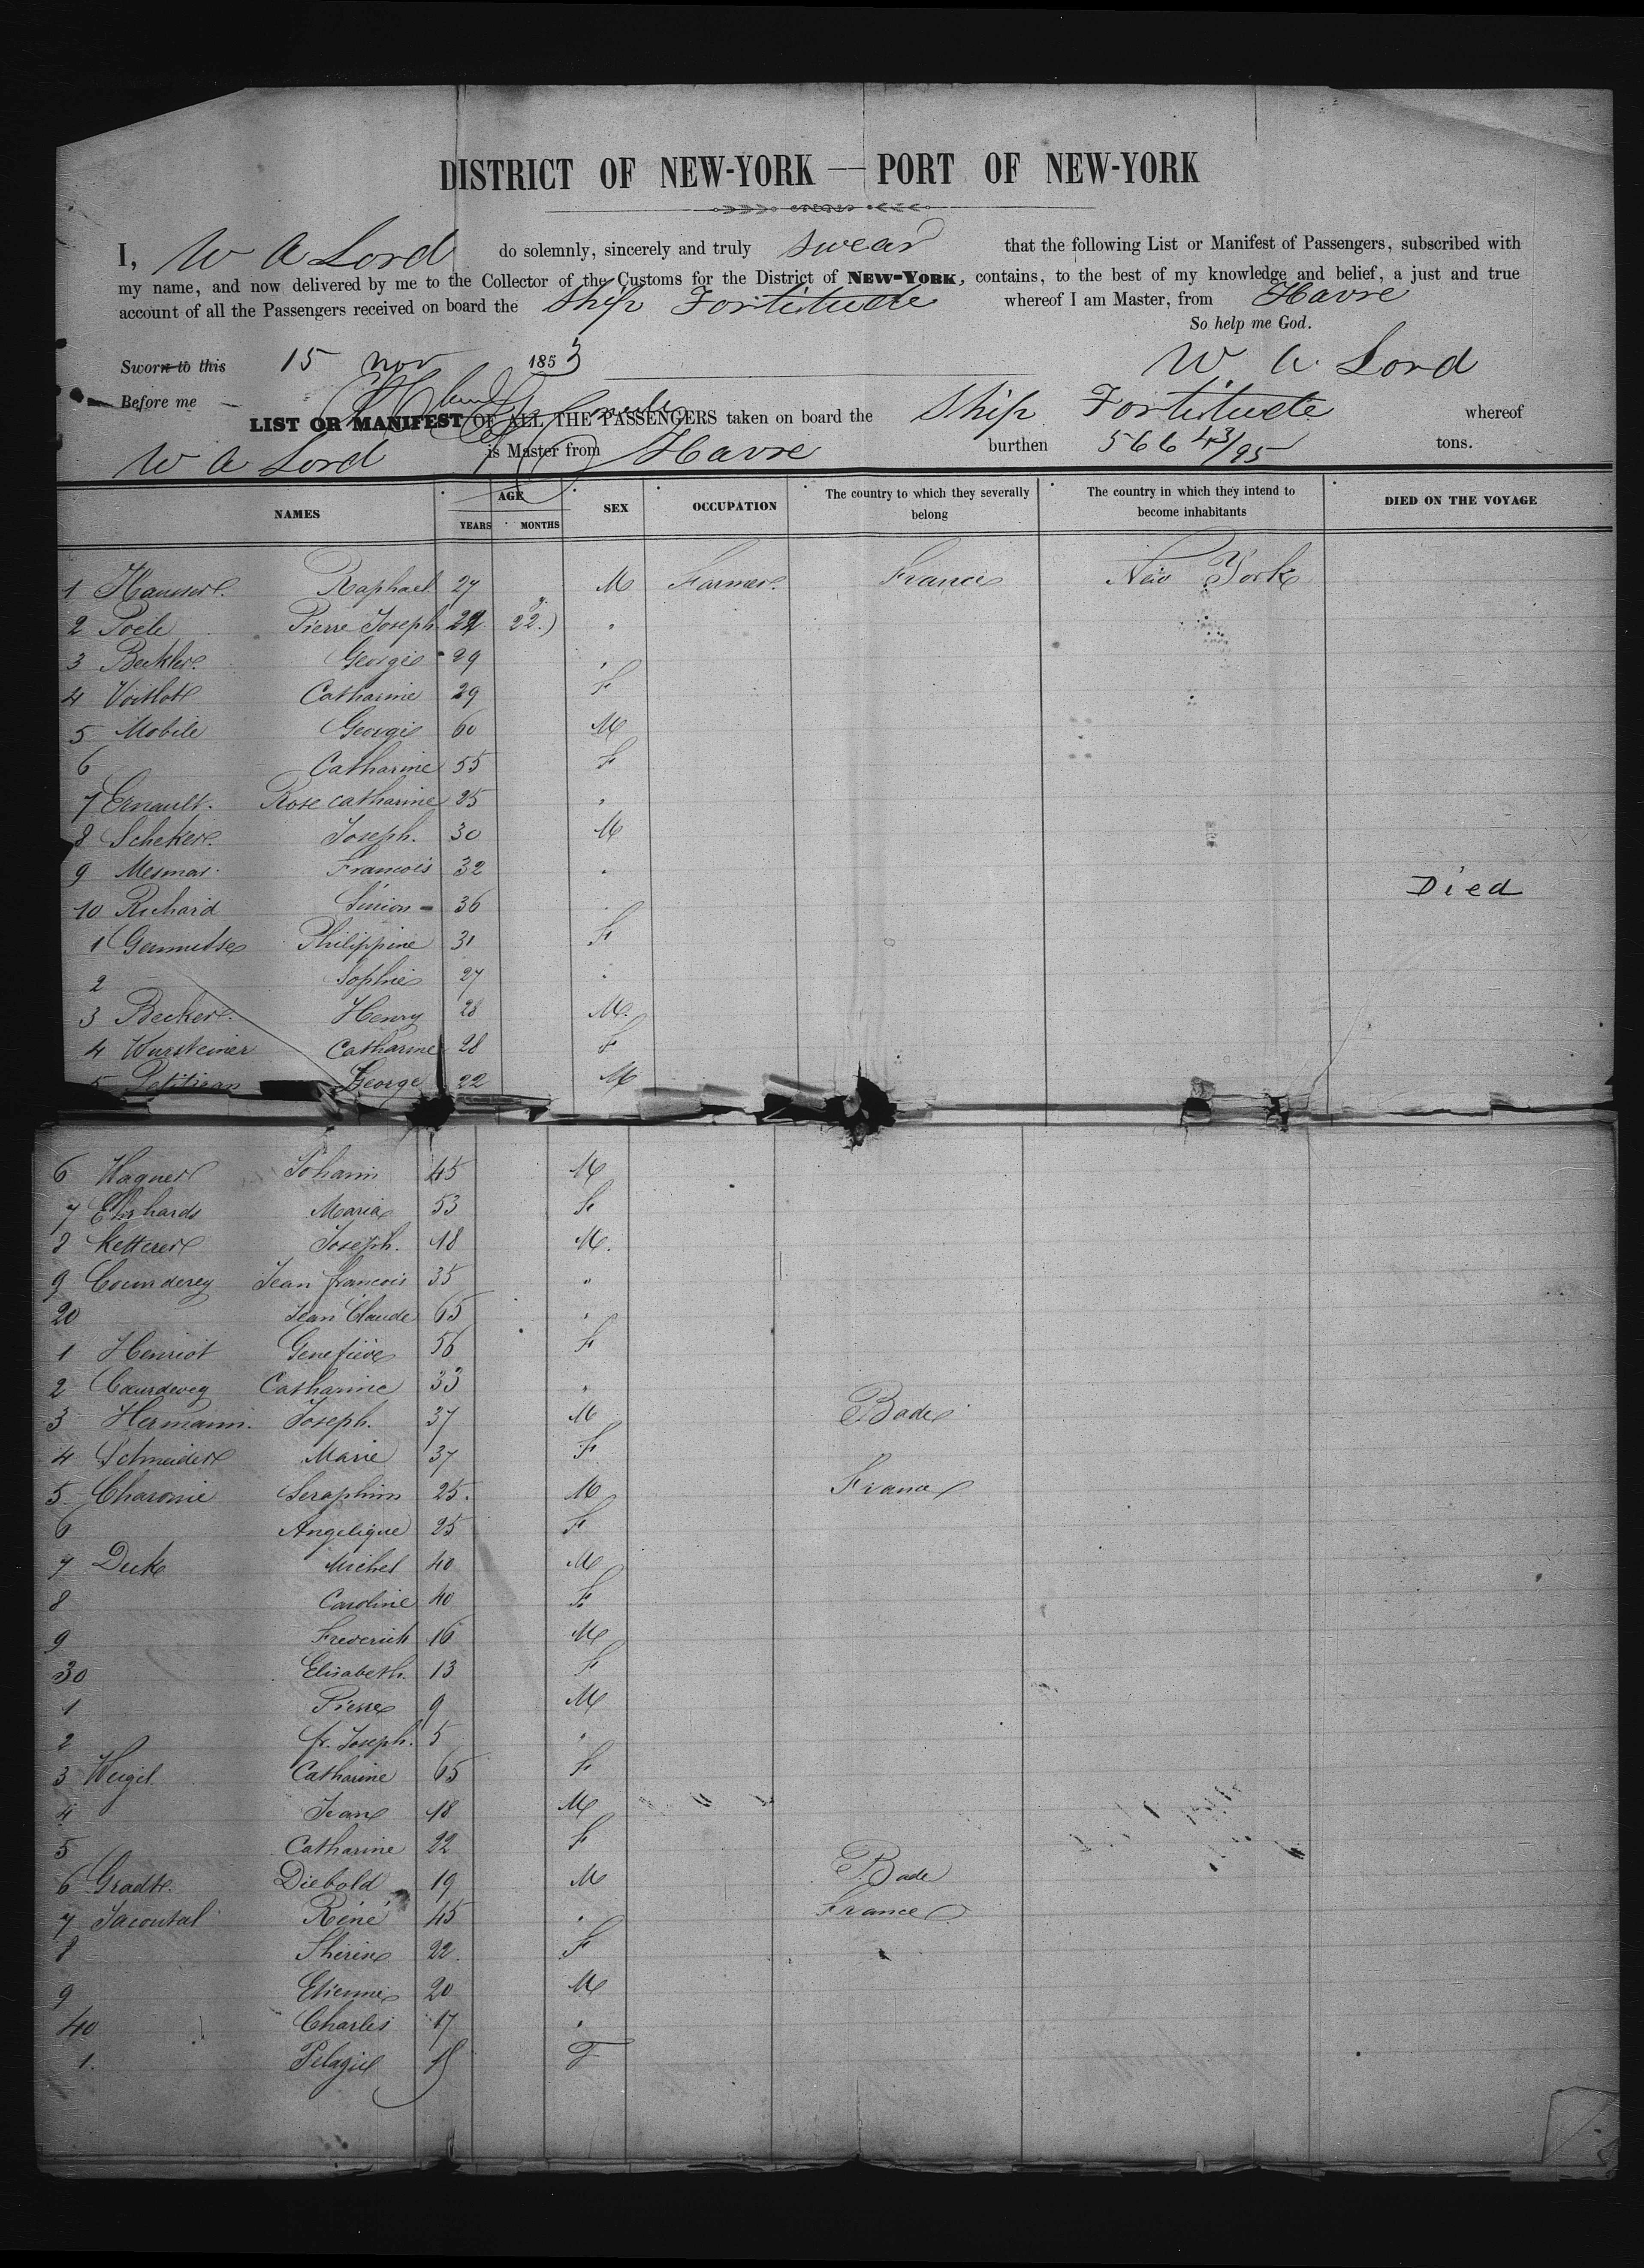 DISTRICT OF NEW-YORK — PORT OF NEW-YORK
I, W A Lord do solemnly, sincerely and truly swear that the following List or Manifest of Passengers, subscribed with
my name, and now delivered by me to the Collector of the Customs for the District of NEW-YORK, contains, to the best of my knowledge and belief, a just and true
account of all the Passengers received on board the Ship Fortitude whereof I am Master, from Havre
So help me God.
Sworn to this 15 nov 1853 W A Lord
Before me
LIST OR MANIFEST OF ALL THE PASSENGERS taken on board the Ship Fortitude whereof
W A Lord is Master from Havre burthen 566 43/95 tons.
NAMES AGE YEARS MONTHS SEX OCCUPATION The country to which they severally belong The country in which they intend to become inhabitants DIED ON THE VOYAGE
1 Hauser Raphael 27 M Farmer France New York
2 Poele Pierre Joseph 22 22.) "
3 Beckler Georges 29 "
4 Catharine 29 F
5 Mobile George 60 M
6 Catharine 55 F
7 Ernault. Rose catharine 25 "
8 Scheker Joseph. 30 M
9 Mesmar. Francois 32 "
10 Richard Simon 36 " Died
1 Philippine 31 F
2 Sophie 27 "
3 Becker Henry 28 M.
4 Wursteiner Catharine 28 F
5 Petitjean George 22 M
6 Wagner Johann 45 M
7 Ehrhards Maria 53 F
8 Ketterer Joseph. 18 M.
9 Courderey Jean francois 35 "
20 Jean Claude 65 "
1 Henriot Genefieve 56 F
2 Catharine 33 "
3 Hermann. Joseph. 37 M Bade
4 Schneider Marie 37 F
5 Charonie Seraphim 25. M France
6 Angelique 25 F
7 Deck Michel 40 M
8 Caroline 40 F
9 Frederick 16 M
30 Elisabeth. 13 F
1 Pierre 9 M
2 fr. Joseph. 5 "
3 Weigel Catharine 65 F
4 Jean 18 M
5 Catharine 22 F
6 Diebold 19 M Bade
7 Jacoutal Réné 45 " France
8 22. F
9 Etienne 20 M
40 Charles 17 "
1. Pelagie F